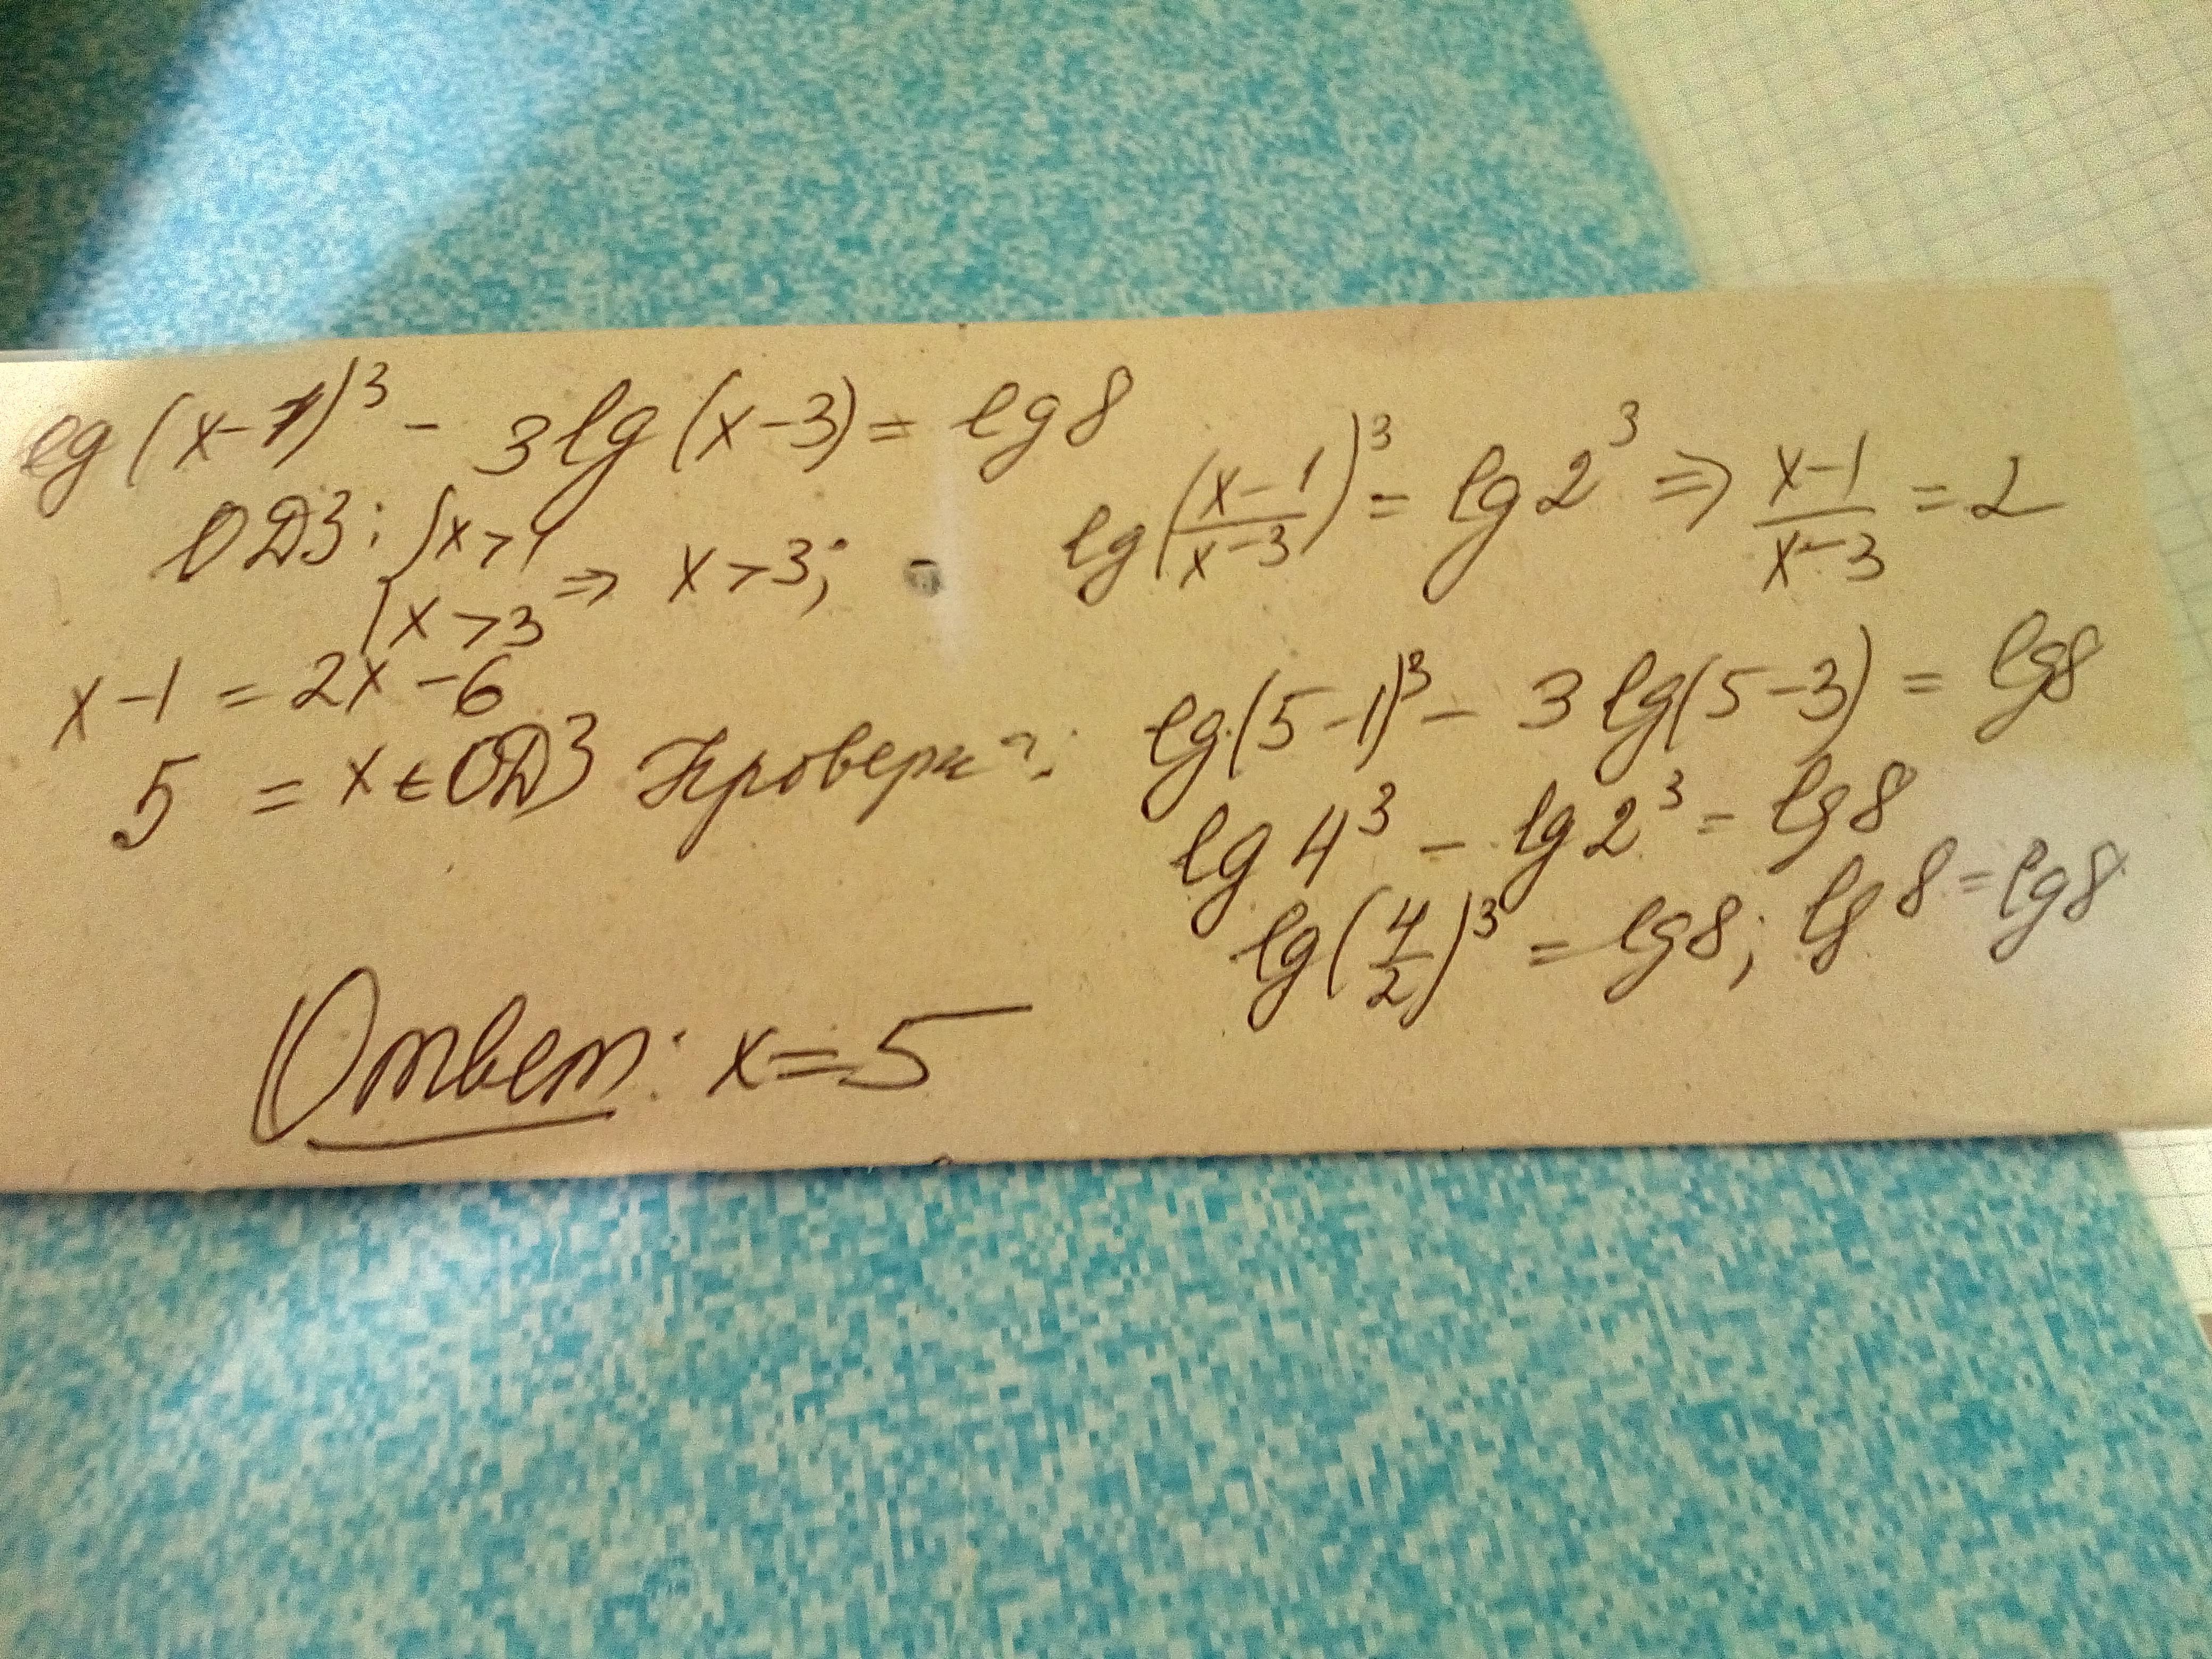 lg(x-1)³ - 3lg(x-3) = lg8
ОДЗ: {x>1
{x>3 ⇒ x>3; -
lg((x-1)/(x-3))³ = lg2³ ⇒ (x-1)/(x-3) = 2
x-1 = 2x-6
5 = x ∈ ОДЗ Проверка:
lg(5-1)³ - 3lg(5-3) = lg8
lg4³ - lg2³ = lg8
lg(4/2)³ = lg8; lg8 = lg8
Ответ: x=5